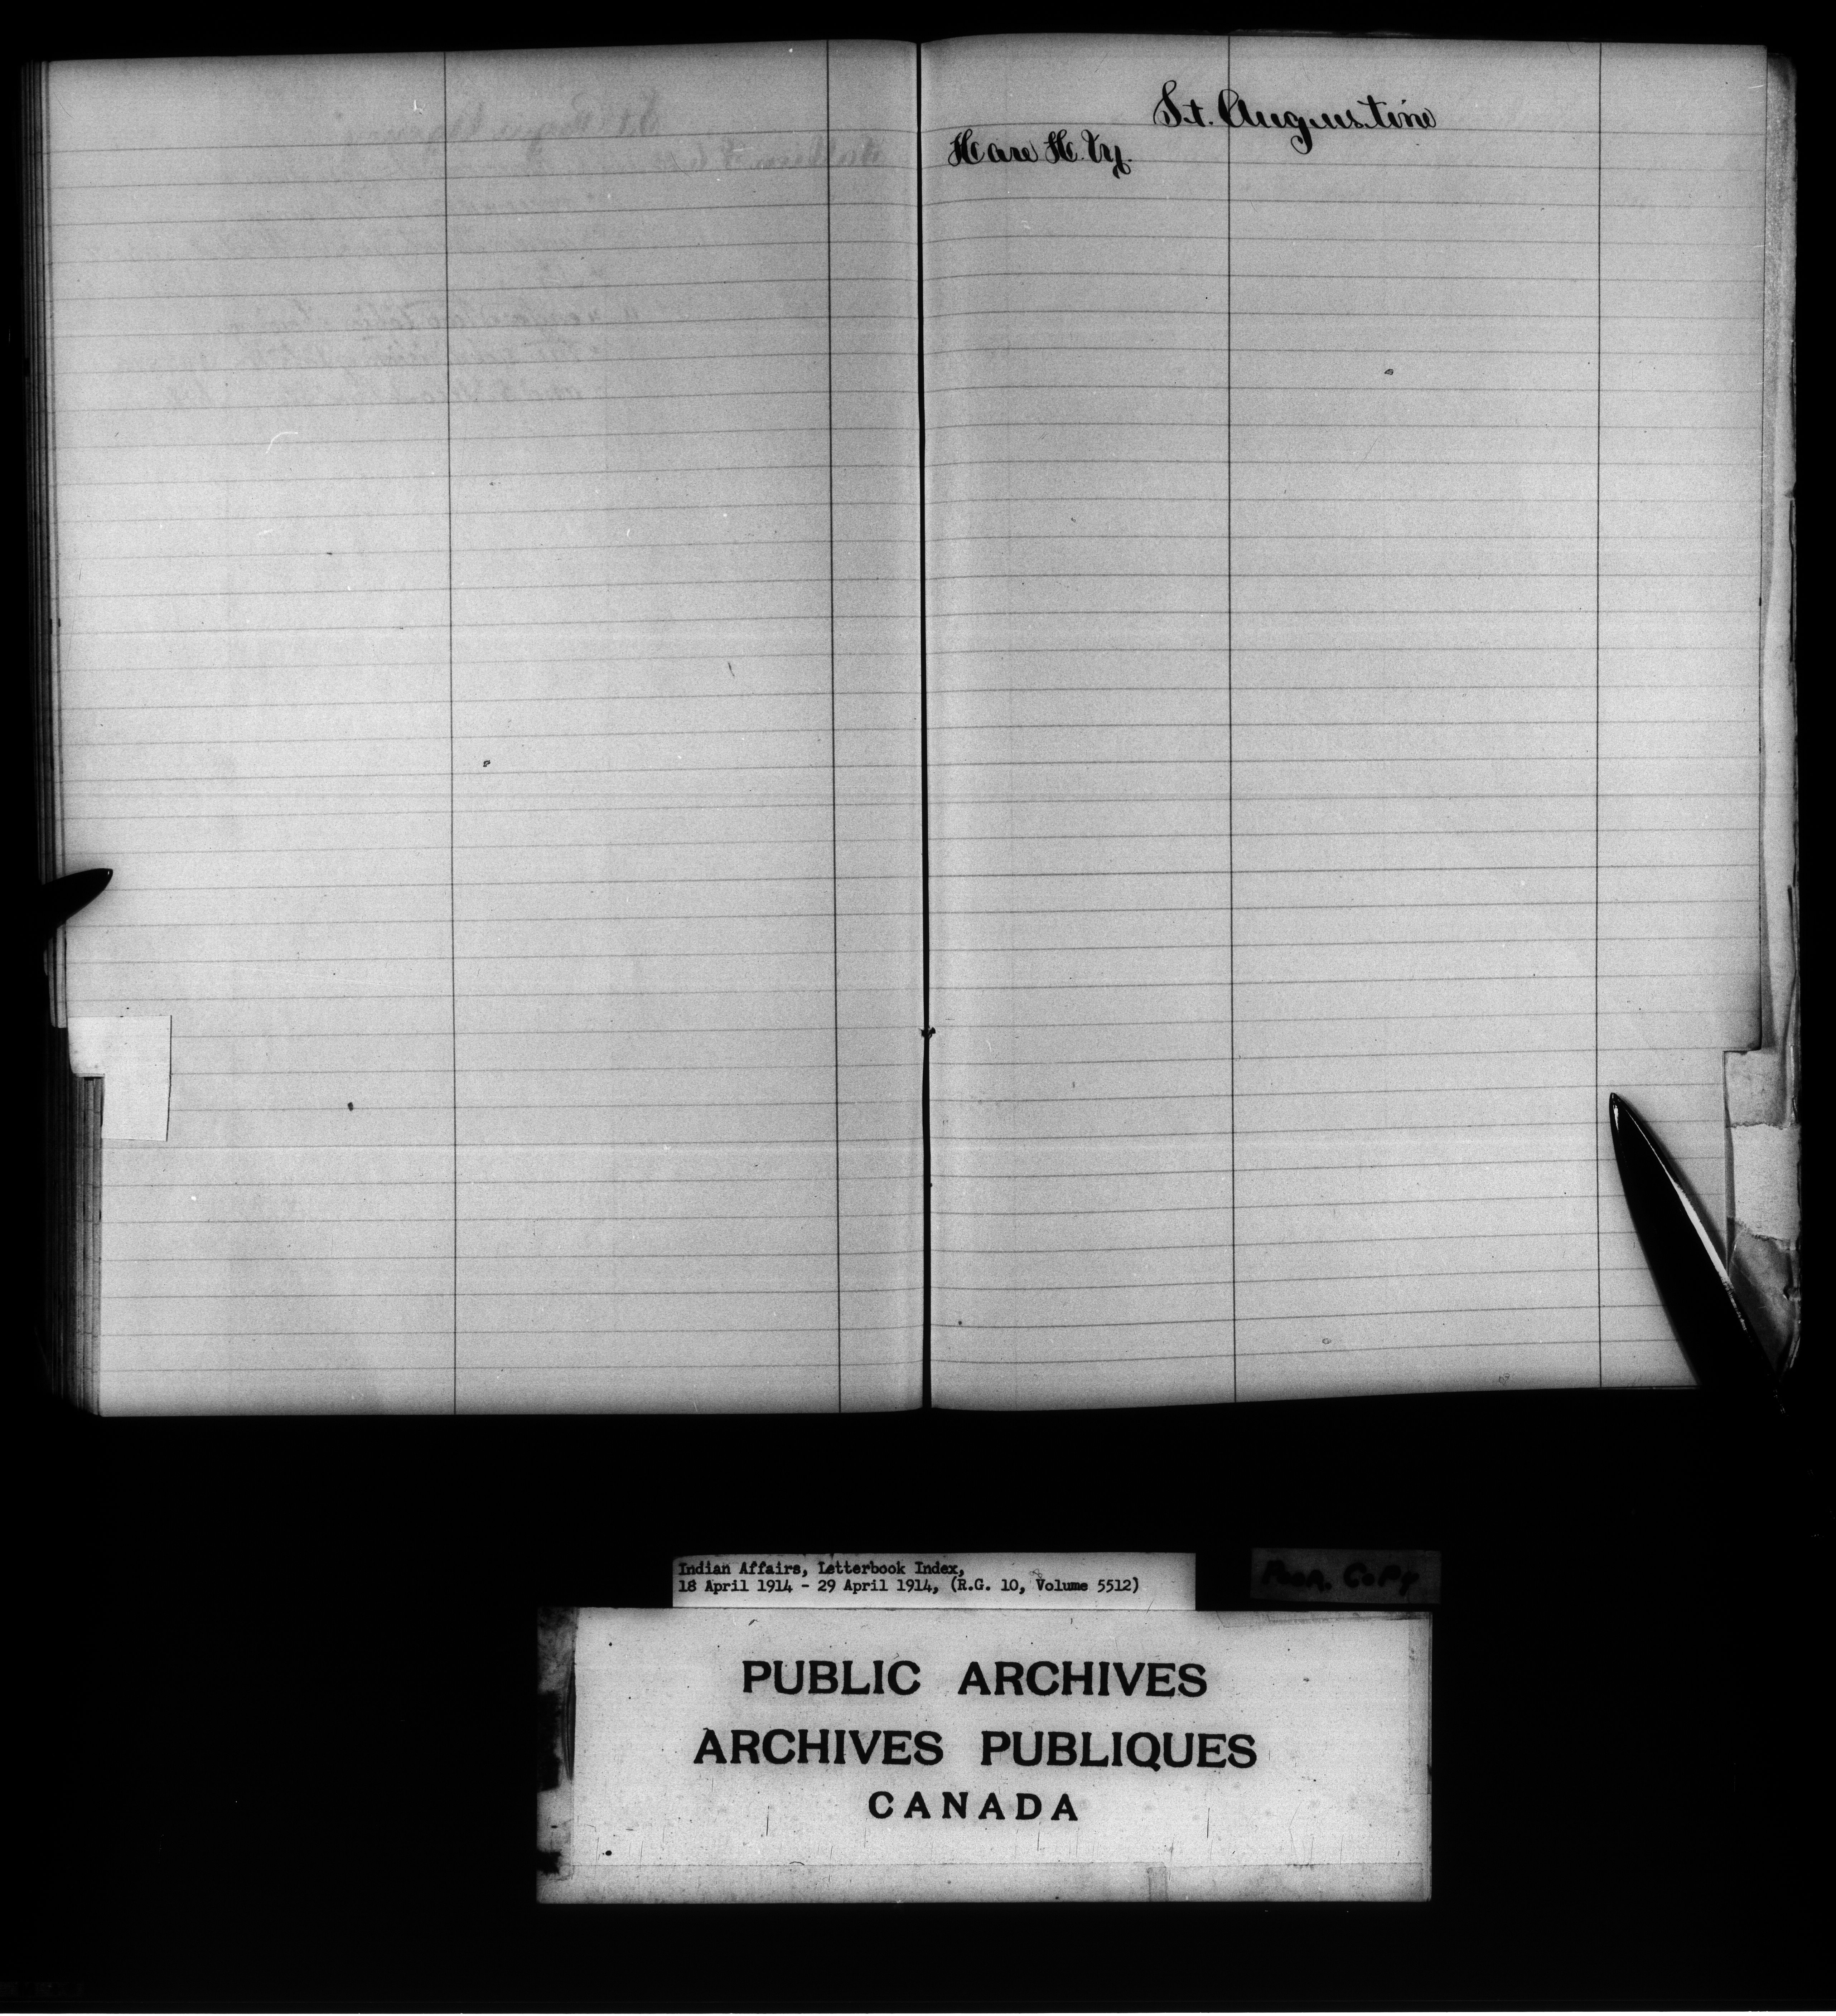 St. Augustine
Hare H. Vy.
Indian Affairs, Letterbook Index,
18 April 1914 - 29 April 1914, (R.G. 10, Volume 5512)
Poor Copy
PUBLIC ARCHIVES
ARCHIVES PUBLIQUES
CANADA